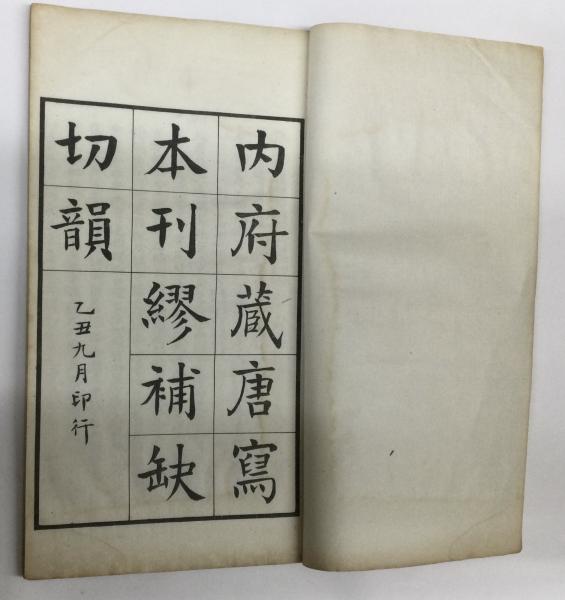 内府藏唐寫
本刊繆補缺
切韻
乙丑九月印行